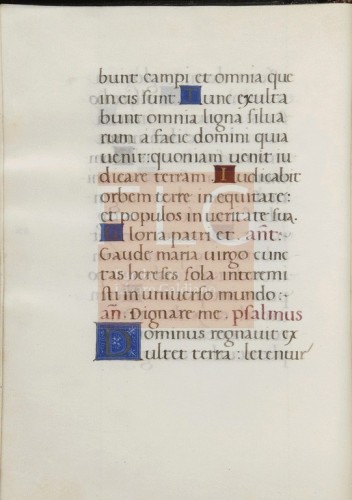 bunt campi et omnia que
in eis sunt. Tunc exulta
bunt omnia ligna silua
rum a facie domini quia
uenit: quoniam uenit iu
dicare terram. Iudicabit
orbem terre in equitate:
et populos in ueritate sua.
Gloria patri et. añt:
Gaude maria uirgo cunc
tas hereses sola interemi
sti in universo mundo:-
añ. Dignare me. psalmus
Dominus regnauit ex
ultet terra: letentur